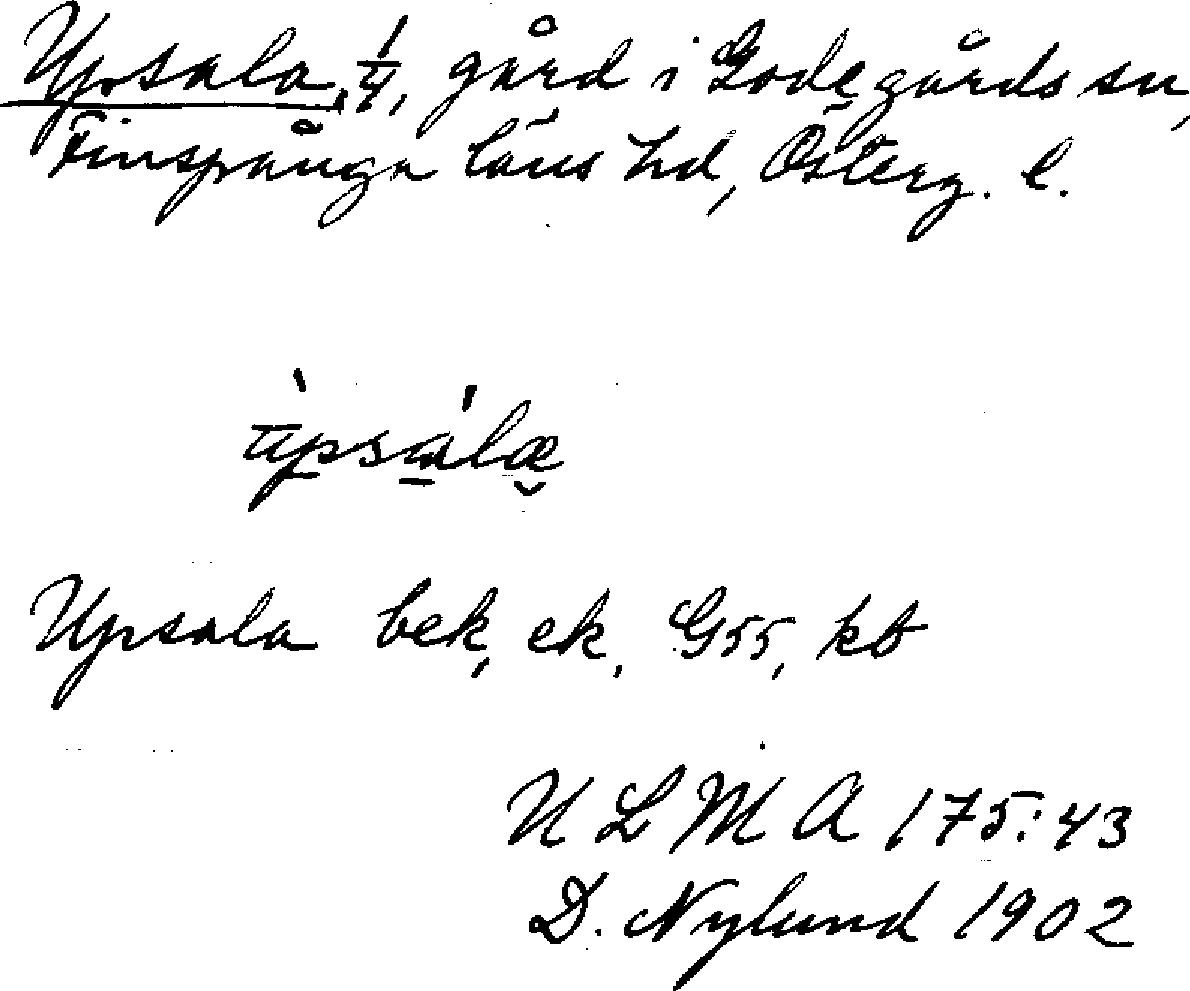 Upsala, 1/4, gård i Godegårds sn,
Finspånga läns hd, Österg. l.
Upsala bek, ek, G55, kb
ULMA 175:43
D. Nylund 1902